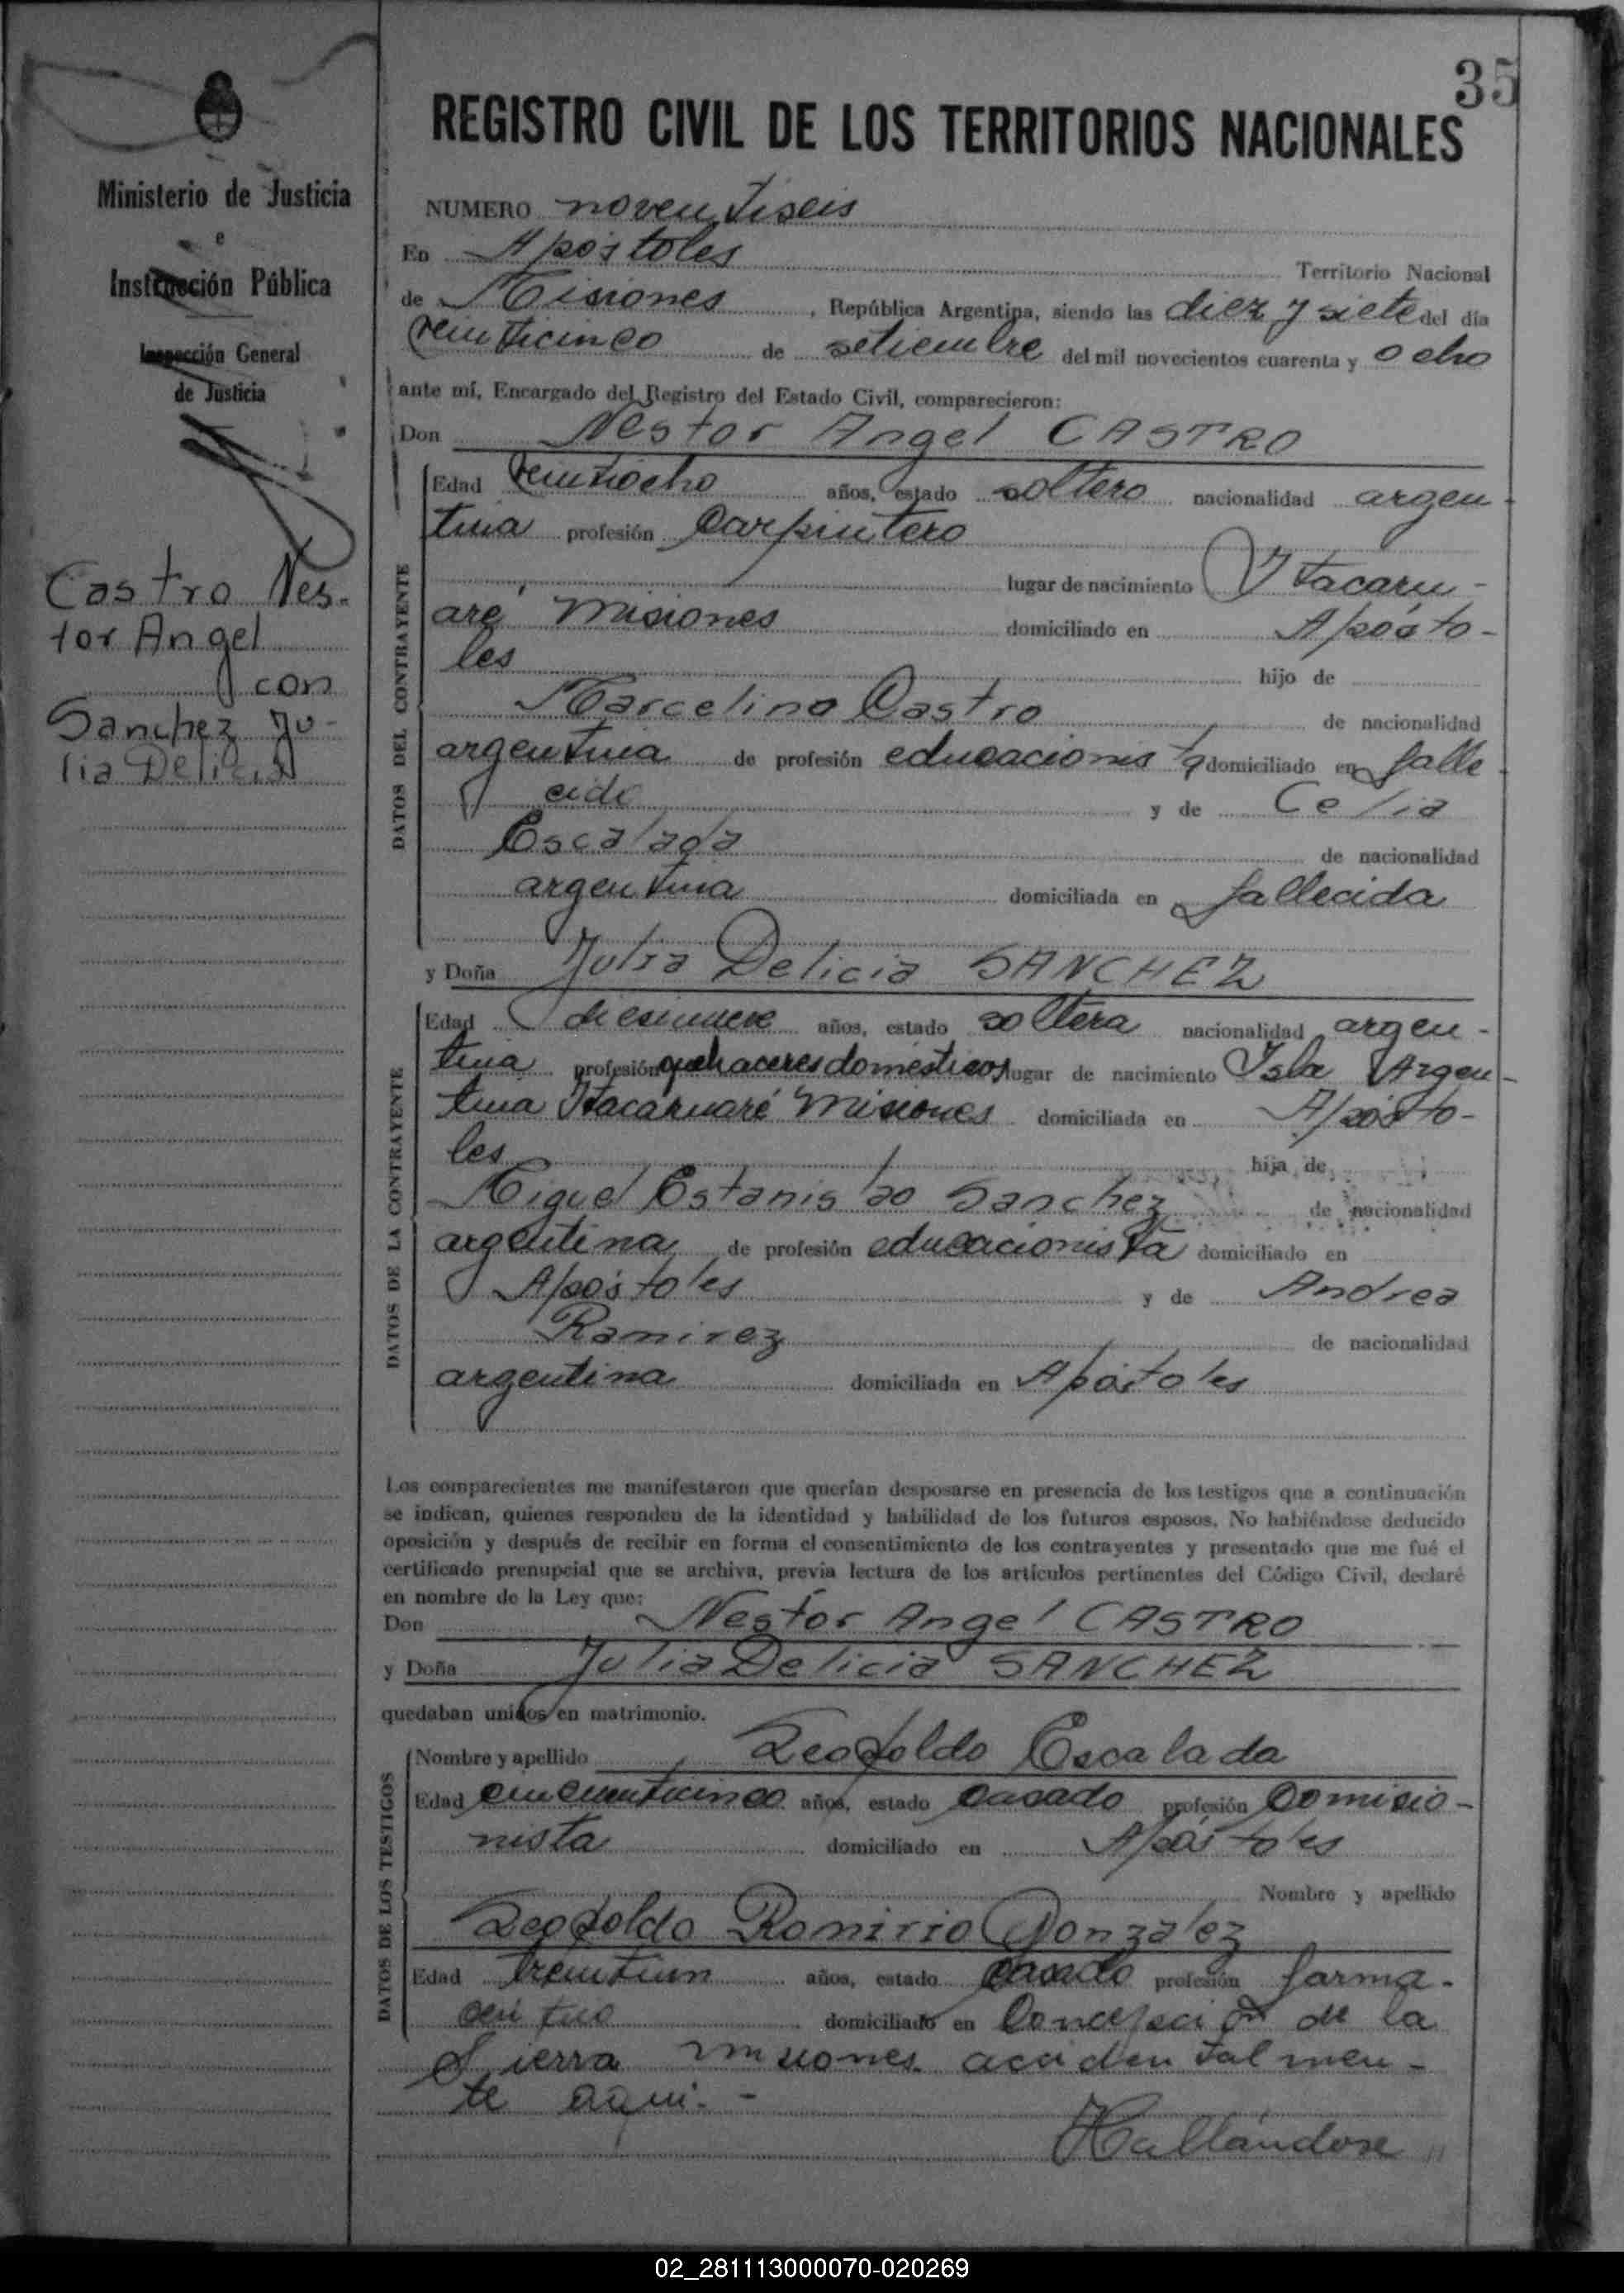 35
REGISTRO CIVIL DE LOS TERRITORIOS NACIONALES
Ministerio de Justicia
e
Instrucción Pública
Inspección General
de Justicia
Castro Nes-
tor Angel
con
Sanchez Ju-
lia Delicia
NUMERO noventiseis
En Apóstoles Territorio Nacional
de Misiones, República Argentina, siendo las diez y siete del día
veinticinco de setiembre del mil novecientos cuarenta y ocho
ante mí, Encargado del Registro del Estado Civil, comparecieron:
Don Nestor Angel CASTRO
DATOS DEL CONTRAYENTE
Edad veintiocho años, estado soltero nacionalidad argen-
tina profesión Carpintero
lugar de nacimiento Itacaru-
aré Misiones domiciliado en Apósto-
les hijo de
Marcelino Castro de nacionalidad
argentina de profesión educacionista domiciliado en falle-
cido y de Celia
Escalada de nacionalidad
argentina domiciliada en fallecida
y Doña Julia Delicia SANCHEZ
DATOS DE LA CONTRAYENTE
Edad diesinueve años, estado soltera nacionalidad argen-
tina profesión quehaceres domésticos lugar de nacimiento Isla Argen-
tina Itacaruaré Misiones domiciliada en Apósto-
les hija de
Miguel Estanislao Sanchez de nacionalidad
argentina de profesión educacionista domiciliado en
Apóstoles y de Andrea
Ramirez de nacionalidad
argentina domiciliada en Apóstoles
Los comparecientes me manifestaron que querían desposarse en presencia de los testigos que a continuación
se indican, quienes responden de la identidad y habilidad de los futuros esposos. No habiéndose deducido
oposición y después de recibir en forma el consentimiento de los contrayentes y presentado que me fué el
certificado prenupcial que se archiva, previa lectura de los artículos pertinentes del Código Civil, declaré
en nombre de la Ley que:
Don Nestor Angel CASTRO
y Doña Julia Delicia SANCHEZ
quedaban unidos en matrimonio.
DATOS DE LOS TESTIGOS
Nombre y apellido Leopoldo Escalada
Edad cincuenticinco años, estado casado profesión comisio-
nista domiciliado en Apóstoles
Nombre y apellido
Leopoldo Ramirio Gonzalez
Edad treintiun años, estado casado profesión farma-
ceutico domiciliado en Concepción de la
Sierra misiones accidentalmen-
te aqui.-
Hallándose
02_281113000070-020269